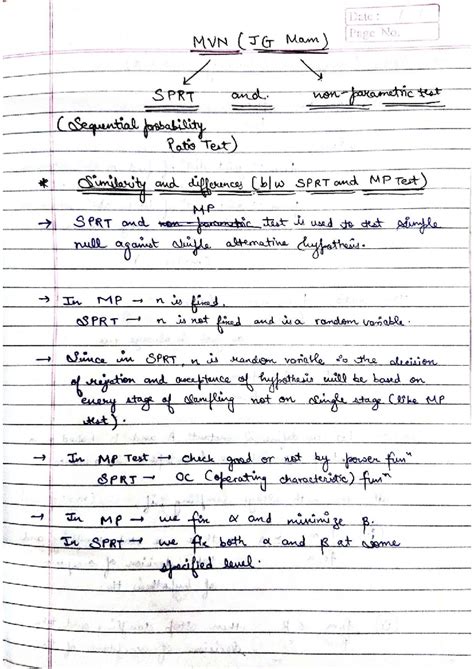 Date : /
Page No.
MVN (JG Mam)
SPRT and non-parametric test
(Sequential probability
Ratio Test)
* Similarity and differences (b/w SPRT and MP Test)
MP
→ SPRT and non-parametric test is used to test simple
null against simple alternative hypothesis.
→ In MP → n is fixed.
SPRT → n is not fixed and is a random variable.
→ Since in SPRT, n is random variable so the decision
of rejection and acceptance of hypothesis will be based on
every stage of sampling not on single stage (like MP
test).
→ In MP Test → check good or not by power funⁿ
SPRT → OC (Operating characteristic) funⁿ
→ In MP → we fix α and minimize β.
In SPRT → we fix both α and β at some
specified level.